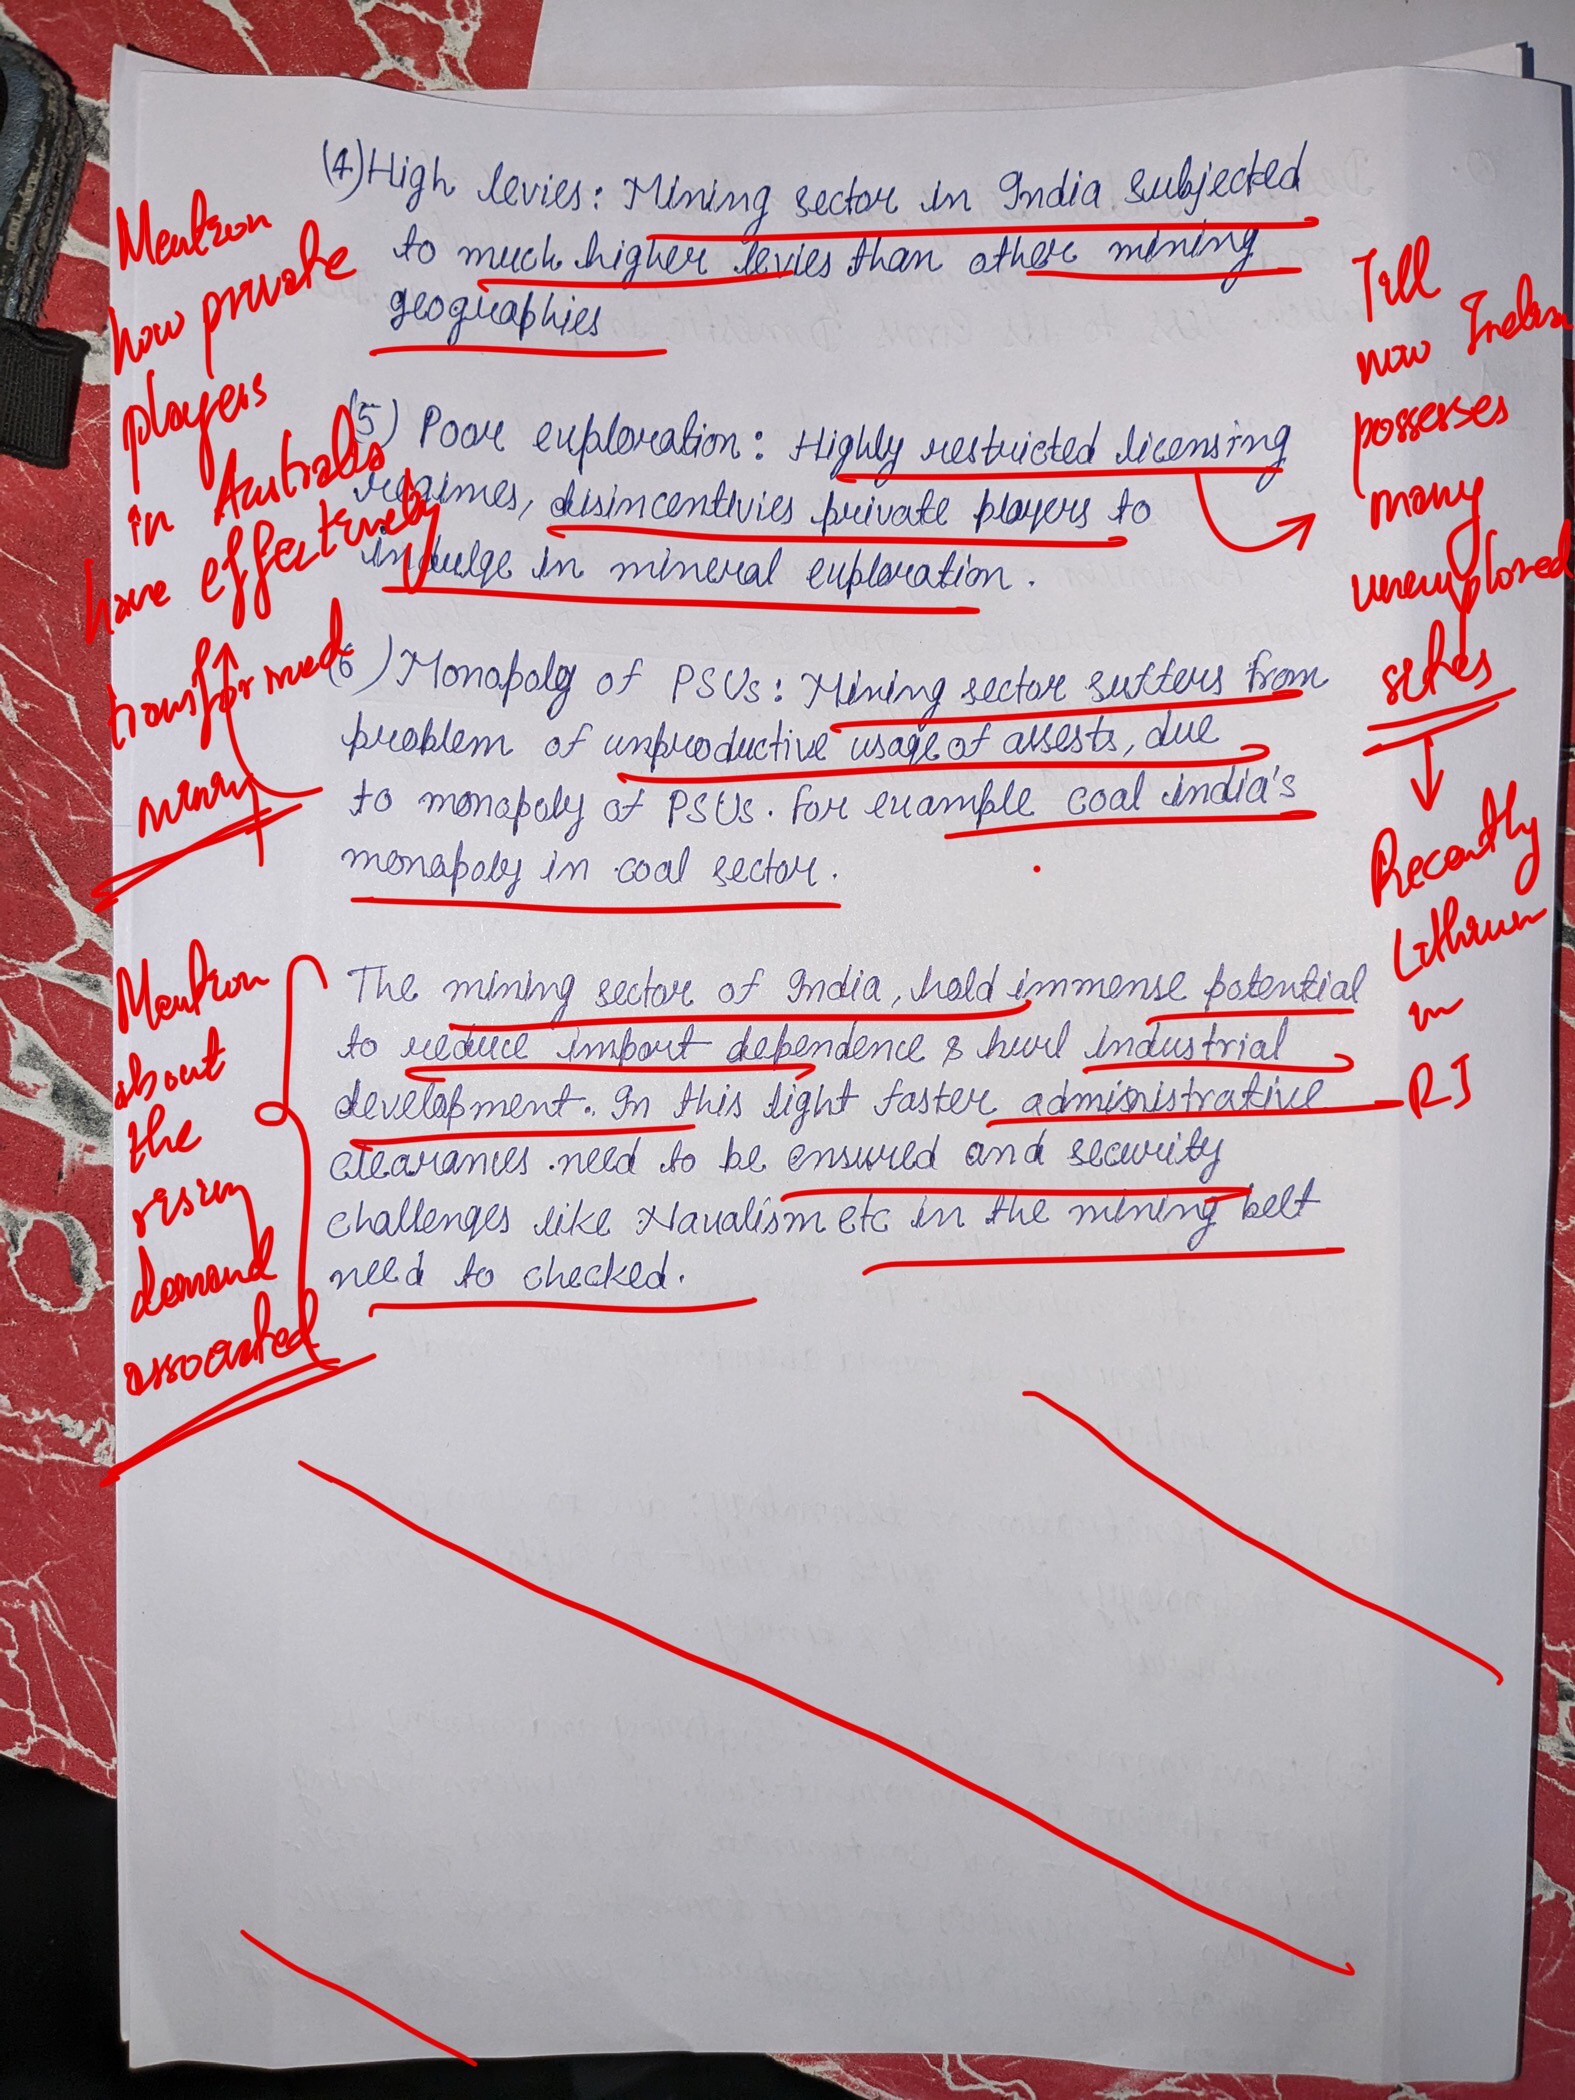 (4) High levies: Mining sector in India subjected
to much higher levies than other mining
geographies
(5) Poor exploration: Highly restricted licensing
regimes, disincentivies private players to
indulge in mineral exploration.
(6) Monopoly of PSUs: Mining sector suffers from
problem of unproductive usage of assests, due
to monopoly of PSUs. For example coal india's
monopoly in coal sector.
The mining sector of India, hold immense potential
to reduce import dependence & hurl industrial
development. In this light faster administrative
clearances need to be ensured and security
challenges like Naxalism etc in the mining belt
need to checked.
Mention
how private
players
in Australia
have effectively
transformed
mining
Mention
about
the
rising
demand
associated
Till
now Indian
possesses
many
unexplored
sites
Recently
Lithium
in
RJ